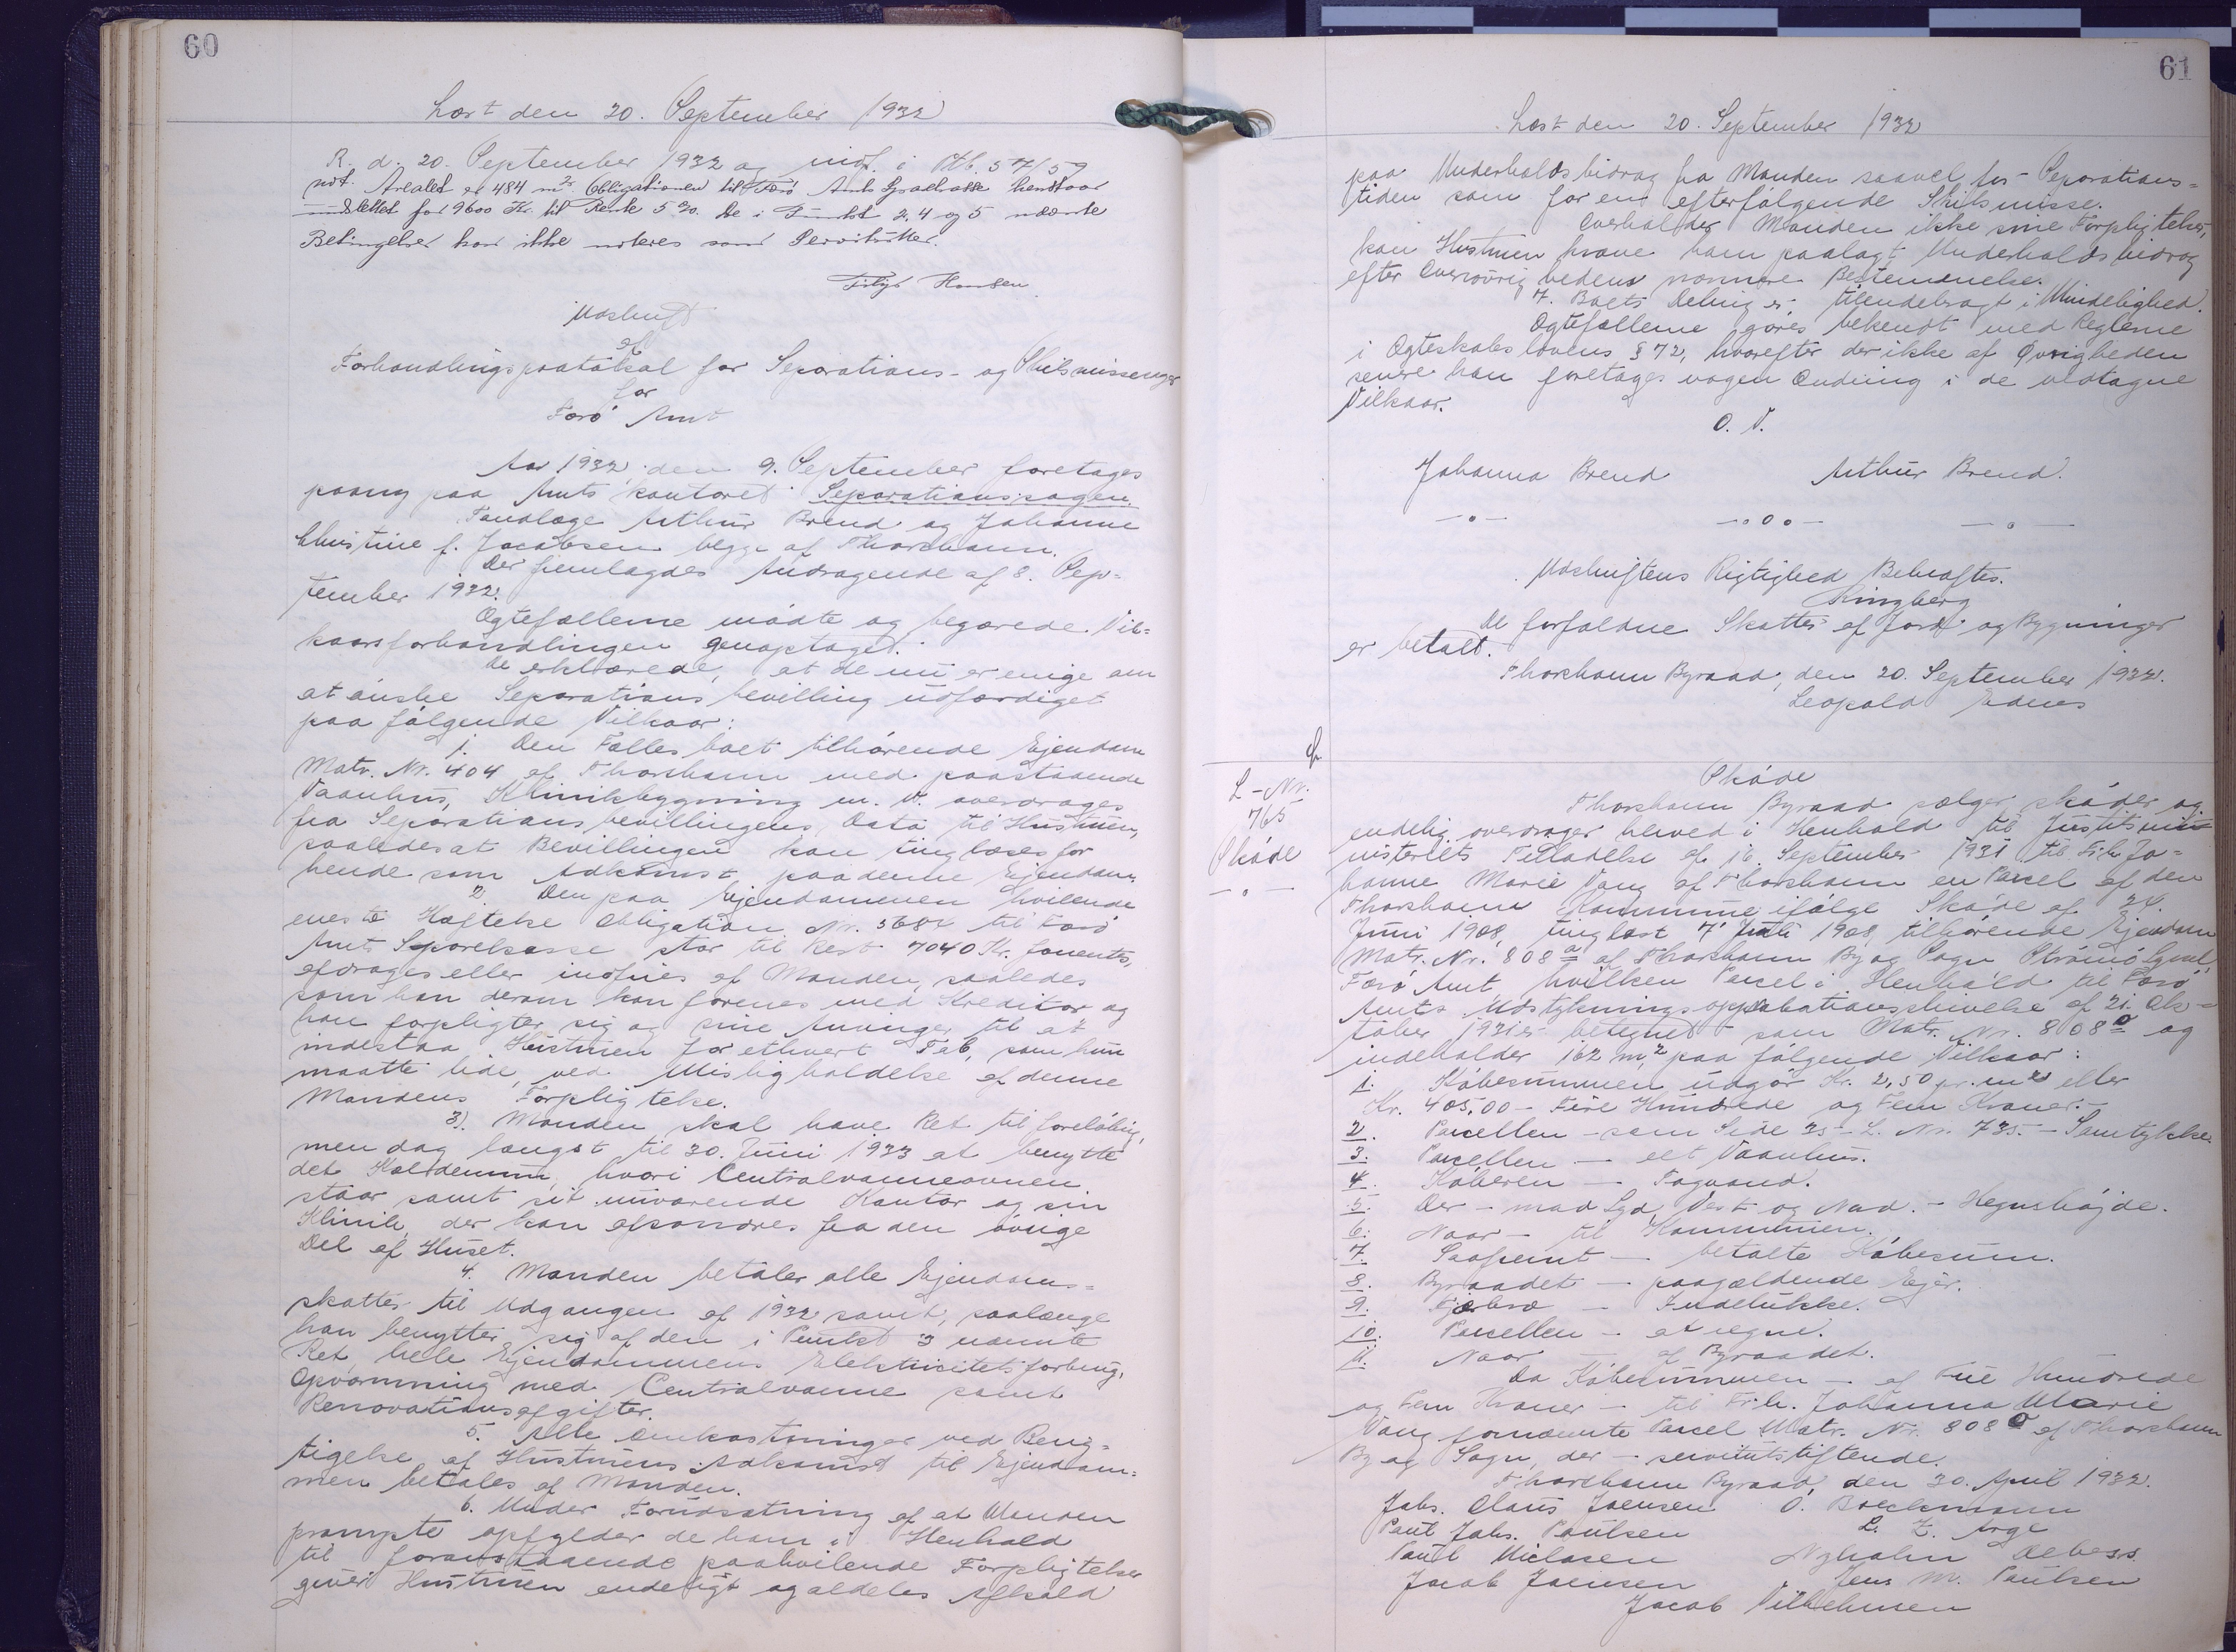 60
Læst den 20. September 1932
R. d. 20. September 1932 og indf. i Ptb. 57/59
not. Arealet er 484 m². Obligationen til Færø Amts Sparekasse henstaar
udslettet for 9600 Kr. til Rente 5 %. De i Punkt 2, 4 og 5 nævnte
Betingelser kan ikke noteres som Servitutter.
Hansen
Udskrift
af
Forhandlingsprotokol for Separations- og Skilsmissesager
for
Færø Amt
Aar 1932, den 9. September foretages
paany paa Amtskontoret Separationssagen
Tandlæge Arthur Brend og Johanne
Christine f. Jacobsen begge af Thorshavn.
Der fremlagdes Andragende af 8. Sep-
tember 1932.
Ægtefællerne mødte og begærede Vil-
kaarsforhandlingen genoptaget.
De erklærede, at de nu er enige om
at ønske Separationsbevilling udfærdiget
paa følgende Vilkaar:
1. Den Fællesboet tilhørende Ejendom
Matr. Nr. 404 af Thorshavn med paastaaende
Vaanhus, Klinikbygning m. v. overdrages
fra Separationsbevillingens Dato til Hustruen,
saaledes at Bevillingen kan tinglæses for
hende som Adkomst paa denne Ejendom.
2. Den paa Ejendommen hvilende
eneste Hæftelse Obligation Nr. 5682 til Færø
Amts Sparekasse stor til Rest 7040 Kr. forrentes,
afdrages eller indfries af Manden, saaledes
som han derom kan forenes med Kreditor og
han forpligter sig og sine Arvinger til at
indestaa Hustruen for ethvert Tab, som hun
maatte lide ved Misligholdelse af denne
Mandens Forpligtelse.
3). Manden skal have Ret til foreløbig,
men dog længst til 30. Juni 1933 at benytte
det Kælderrum, hvori Centralvarmeovnen
staar samt sit nuværende Kontor og sin
Klinik, der kan afsondres fra den øvrige
Del af Huset.
4. Manden betaler alle Ejendoms-
skatter til Udgangen af 1932 samt, saalænge
han benytter sig af den i Punkt 3 nævnte
Ret, hele Ejendommens Elektricitetsforbrug,
Opvarmning med Centralvarme samt
Renovationsafgifter.
5. Alle Omkostninger ved Berig-
tigelse af Hustruens Adkomst til Ejendom-
men betales af Manden.
6. Under Forudsætning af at Manden
prompte opfylder de ham i Henhold
til foranstaaende paahvilende Forpligtelser
giver Hustruen endeligt og aldeles Afkald
61
Læst den 20. September 1932
paa Underholdsbidrag fra Manden saavel for Separations-
tiden som for en efterfølgende Skilsmisse.
Overholder Manden ikke sine Forpligtelser,
kan Hustruen kræve ham paalagt Underholdsbidrag
efter Overøvrighedens nærmere Bestemmelse.
7. Boets Deling er tilendebragt i Mindelighed.
Ægtefællerne gøres bekendt med Reglerne
i Ægteskabslovens § 72, hvorefter der ikke af Øvrigheden
senere kan foretages nogen Ændring i de vedtagne
Vilkaar.
O. V.
Johanna Brend Arthur Brend.
—o— —ooo— —o—
Udskriftens Rigtighed Bekræftes.
Ringberg
De forfaldne Skatter af Jord og Bygninger
er betalt.
Thorshavn Byraad, den 20. September 1932.
Leopold
L-Nr.
765
Skøde
—o—
Skøde
Thorshavn Byraad sælger, skøder og
endelig overdrager herved i Henhold til Justitsmi-
nisteriets Tilladelse af 16. September 1931 til Frk. Jo-
hanne Marie Vang af Thorshavn en Parcel af den
Thorshavn Kommune ifølge Skøde af 24.
Juni 1908, tinglæst 7. Juli 1908, tilhørende Ejendom
Matr. Nr. 808ª af Thorshavn By og Sogn Strømø Syssel,
Færø Amt, hvilken Parcel i Henhold til Færø
Amts Udstykningsapprobationsskrivelse af 21. Ok-
tober 1931 er betegnet som Matr. Nr. 808º og
indeholder 162 m², paa følgende Vilkaar:
1. Købesummen udgør Kr. 2,50 pr. m² eller
Kr. 405,00 - Fire Hundrede og Fem Kroner.-
2. Parcellen - som Side 25 - L. Nr. 735. - Samtykke.
3. Parcellen — eet Vaanhus.
4. Køberen — Tagvand.
5. Der - mod Syd, Vest og Nord. - Hegnshøjde.
6. Naar — til Kommunen.
7. Saafremt — betalte Købesum.
8. Byraadet — paagældende Ejer.
9. Fjerkræ — Indelukke.
10. Parcellen — at regne.
11. Naar — af Byraadet.
Da Købesummen — af Fire Hundrede
og Fem Kroner — til Frk. Johanna Marie
Vang fornævnte Parcel Matr. Nr. 808º af Thorshavn
By og Sogn, der — servitutstiftende.
Thorshavn Byraad, den 30. April 1932.
Johs. Claus Joensen O. Boeckmann
Paul Johs. Paulsen L. Z. Arge
Paul Niclasen Nyholm Debess.
Jacob Joensen Jens M. Paulsen
Jacob Vilhelmsen